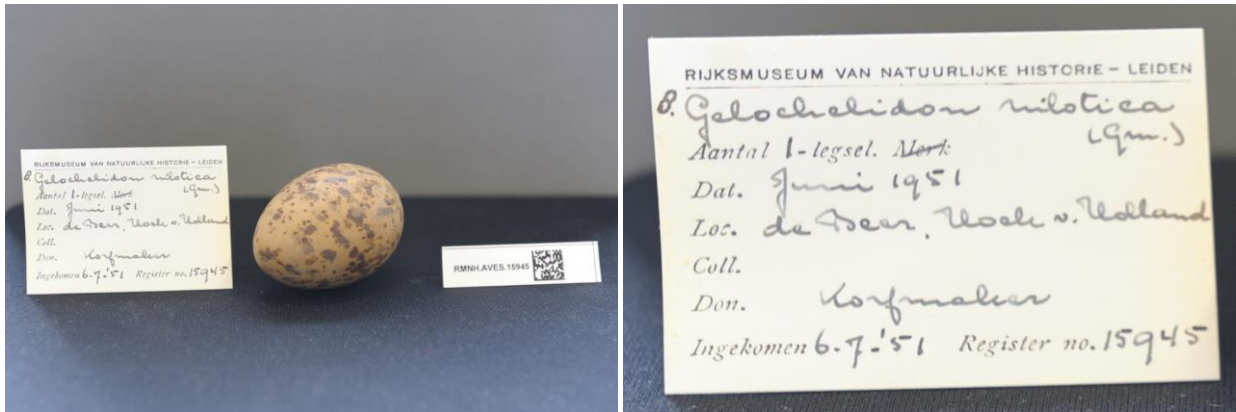 RIJKSMUSEUM VAN NATUURLIJKE HISTORIE – LEIDEN
B. Gelochelidon nilotica
(Gm.)
Aantal 1-legsel. Merk
Dat. Juni 1951
Loc. de Beer, Hoek v. Holland
Coll.
Don. Korfmaker
Ingekomen 6.7.'51 Register no. 15945
RMNH.AVES.15945
RIJKSMUSEUM VAN NATUURLIJKE HISTORIE – LEIDEN
B. Gelochelidon nilotica
(Gm.)
Aantal 1-legsel. Merk
Dat. Juni 1951
Loc. de Beer, Hoek v. Holland
Coll.
Don. Korfmaker
Ingekomen 6.7.'51 Register no. 15945